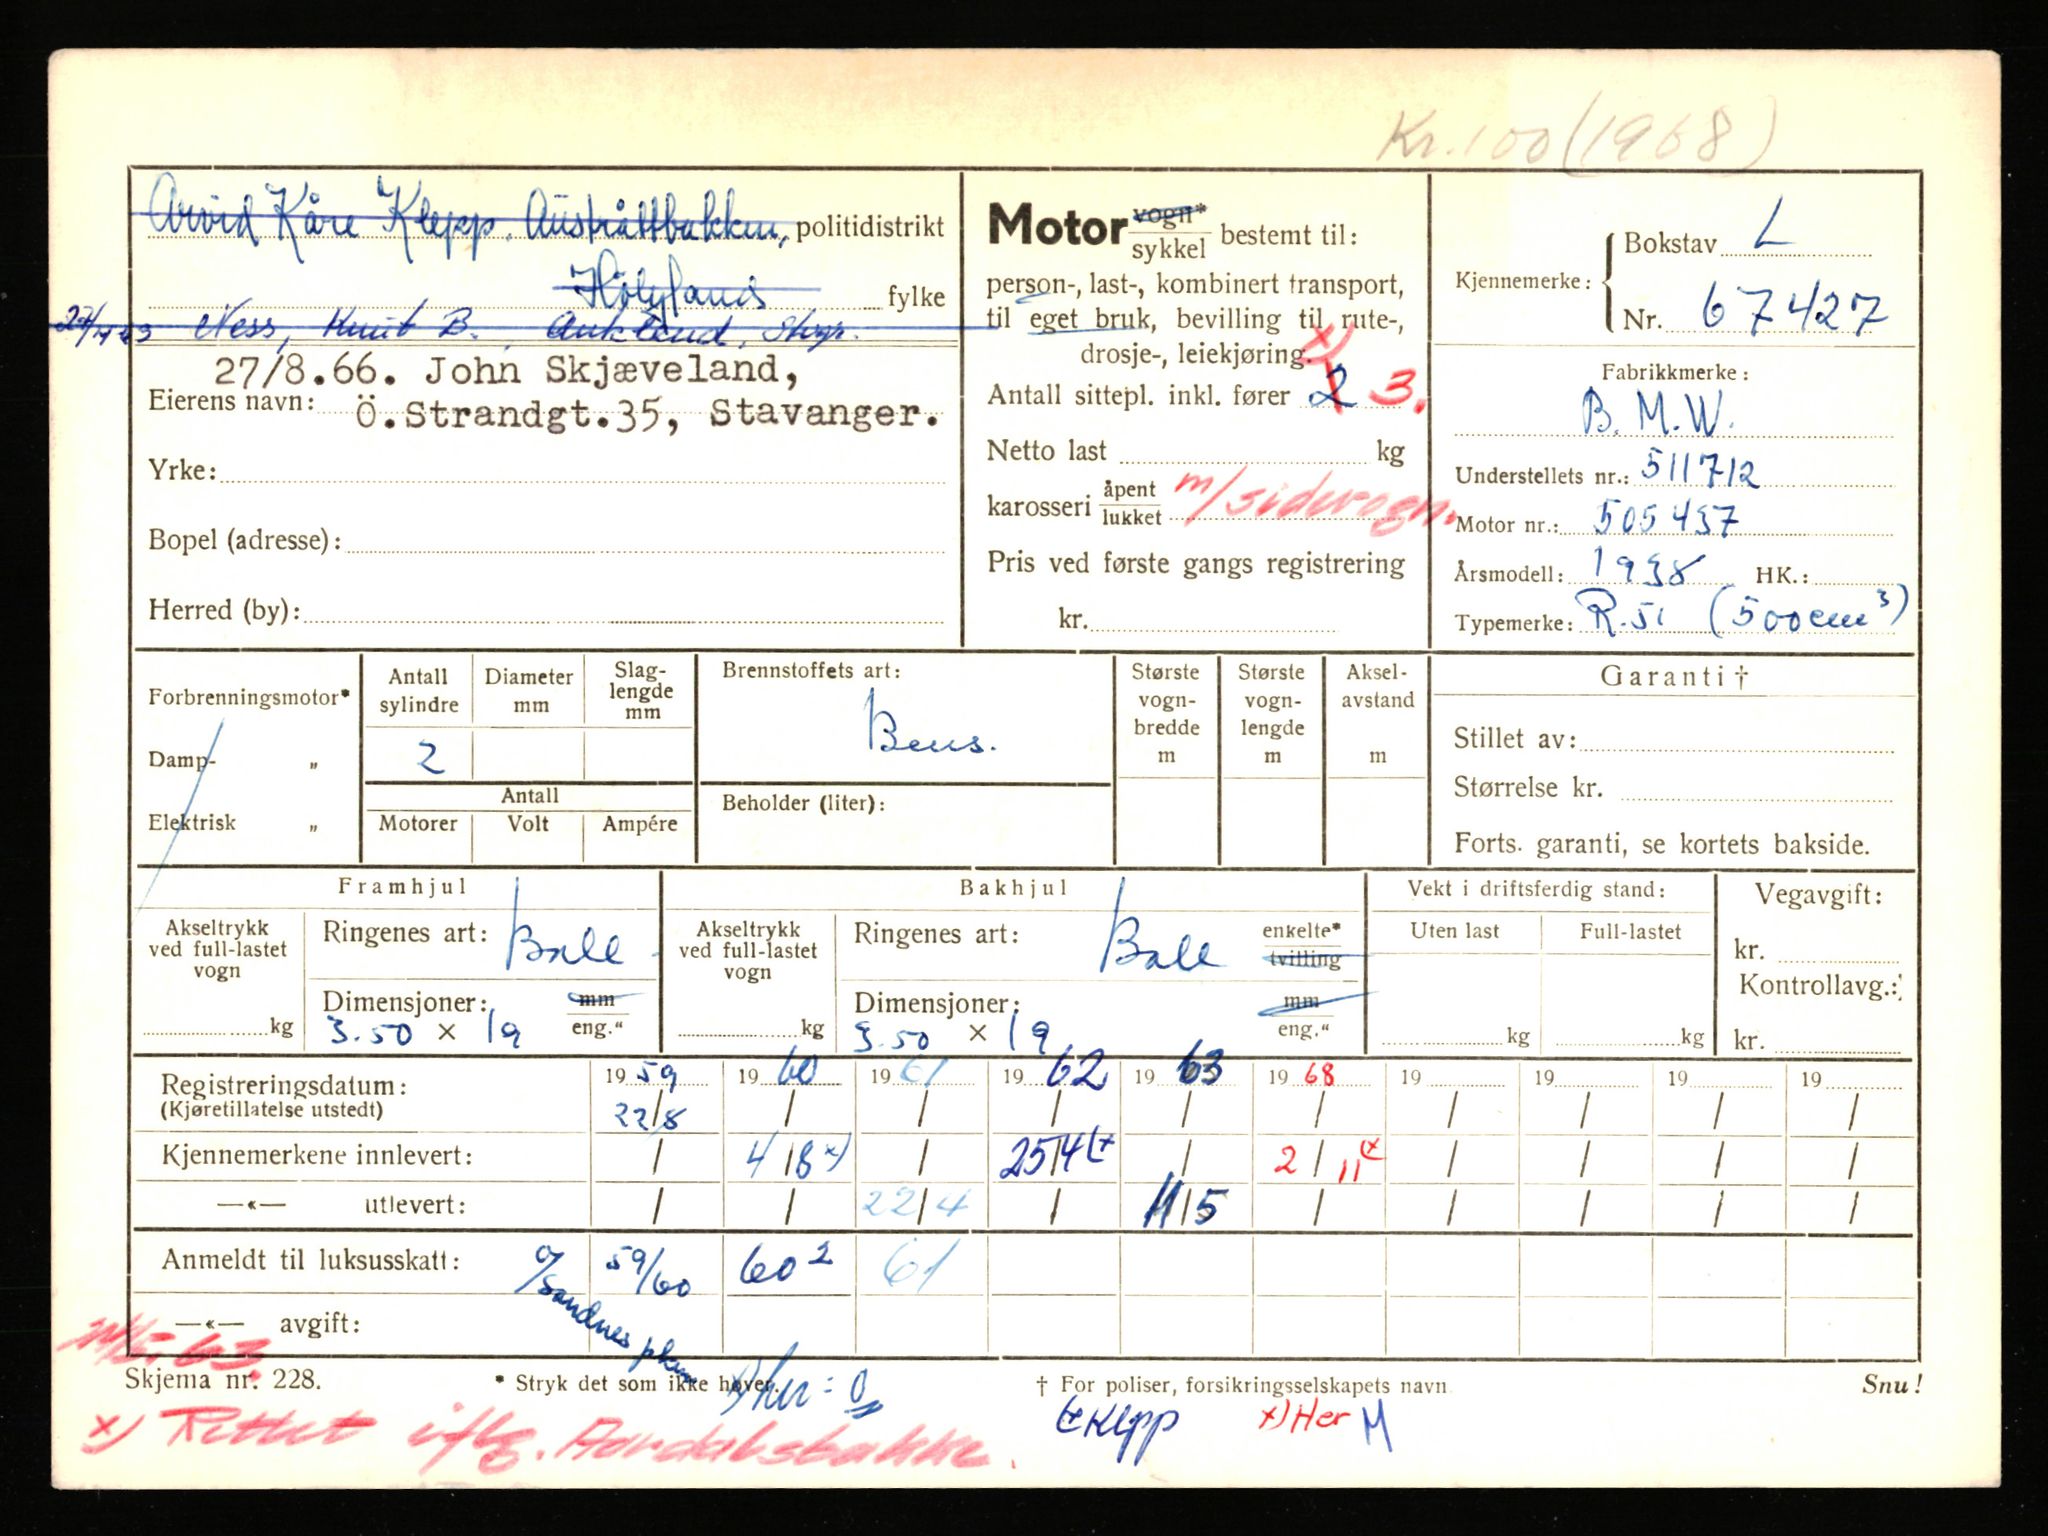 Kr. 100 (1968)
Arvid Kåre Klepp. Austråttbakken, politidistrikt
Höyland fylke
Ness, Knut B., Aukland, Skp.
27/8.66. John Skjæveland,
Eierens navn: Ö.Strandgt.35, Stavanger.
Yrke:
Bopel (adresse):
Herred (by):
Motor vogn* sykkel bestemt til:
person-, last-, kombinert transport,
til eget bruk, bevilling til rute-,
drosje-, leiekjøring.
x)
Antall sittepl. inkl. fører 2 3.
Netto last kg
karosseri åpent lukket m/sidevogn.
Pris ved første gangs registrering
kr.
Kjennemerke: Bokstav L
Nr. 67427
Fabrikkmerke:
B.M.W.
Understellets nr.: 511712
Motor nr.: 505437
Årsmodell: 1938 HK.:
Typemerke: R.51 (500 cm³)
Forbrenningsmotor*
Damp- „
Elektrisk „
Antall sylindre
Diameter mm
Slag-lengde mm
2
Antall
Motorer Volt Ampére
Brennstoffets art:
Bens.
Beholder (liter):
Største vogn-bredde m
Største vogn-lengde m
Aksel-avstand m
Garanti †
Stillet av:
Størrelse kr.
Forts. garanti, se kortets bakside.
Framhjul
Akseltrykk ved full-lastet vogn
kg
Ringenes art: Ball
Dimensjoner: mm
3.50 x 19 eng."
Bakhjul
Akseltrykk ved full-lastet vogn
kg
Ringenes art: Ball enkelte* tvilling
Dimensjoner: mm
3.50 x 19 eng."
Vekt i driftsferdig stand:
Uten last Full-lastet
kg kg
Vegavgift:
kr.
Kontrollavg.:
kr.
Registreringsdatum: 19 59 19 60 19 61 19 62 19 63 19 68 19 19 19 19
(Kjøretillatelse utstedt) 22/8 / / / / / / / / /
Kjennemerkene innlevert: / 4/8 x) / 25/4 (x / 2/11 (x / / / /
—«— utlevert: / / 22/4 / 11/5 / / / / /
Anmeldt til luksusskatt: 59/60 60² 61
o/Sandnes pkm
—«— avgift:
Skjema nr. 228. * Stryk det som ikke høver. † For poliser, forsikringsselskapets navn Snu!
x) Rettet iflg. Aardalsbakke.
(x Klepp x) Her M